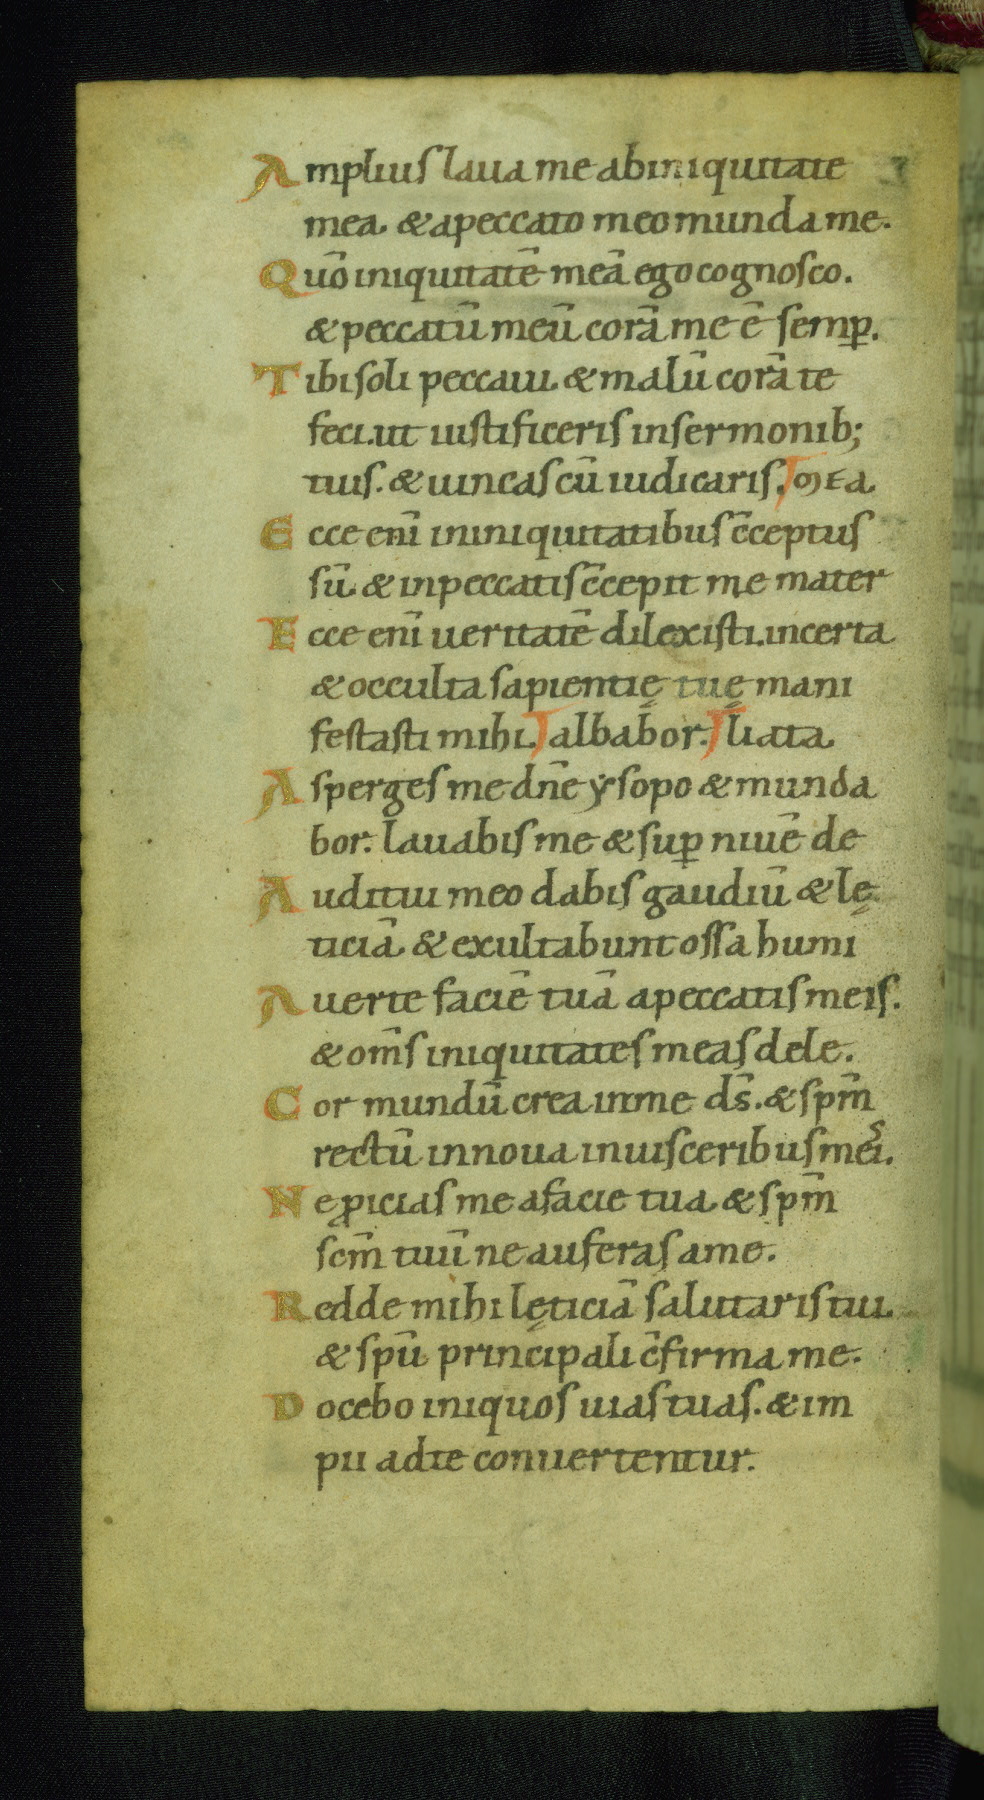 Amplius laua me abiniquitate
mea. & apeccato meo munda me.
Quō iniquitatē meā ego cognosco.
& peccatū meū corā me ē semꝑ.
Tibi soli peccaui. & malū corā te
feci. ut iustificeris insermonib;
tuis. & uincas cū iudicaris. mea
Ecce eni̅ ininiquitatibus c̄ceptus
sū & inpeccatis c̄cepit me mater
Ecce eni̅ ueritatē dilexisti. incerta
& occulta sapientię tuę mani
festasti mihi. albabor. liata
Asperges me dn̄e ẏsopo & munda
bor. lauabis me & suꝑ niuē de
Auditui meo dabis gaudiū & lę
ticiā. & exultabunt ossa humi
Auerte faciē tuā apeccatis meis.
& om̄s iniquitates meas dele.
Cor mundū crea inme ds̄. & spm̄
rectū innoua inuisceribus meis.
Ne ꝓicias me afacie tua. & spm̄
scm̄ tuū ne auferas ame.
Redde mihi lęticiā salutaris tui.
& spū principali c̄firma me.
Docebo iniquos uias tuas. & im
pii adte conuertentur.